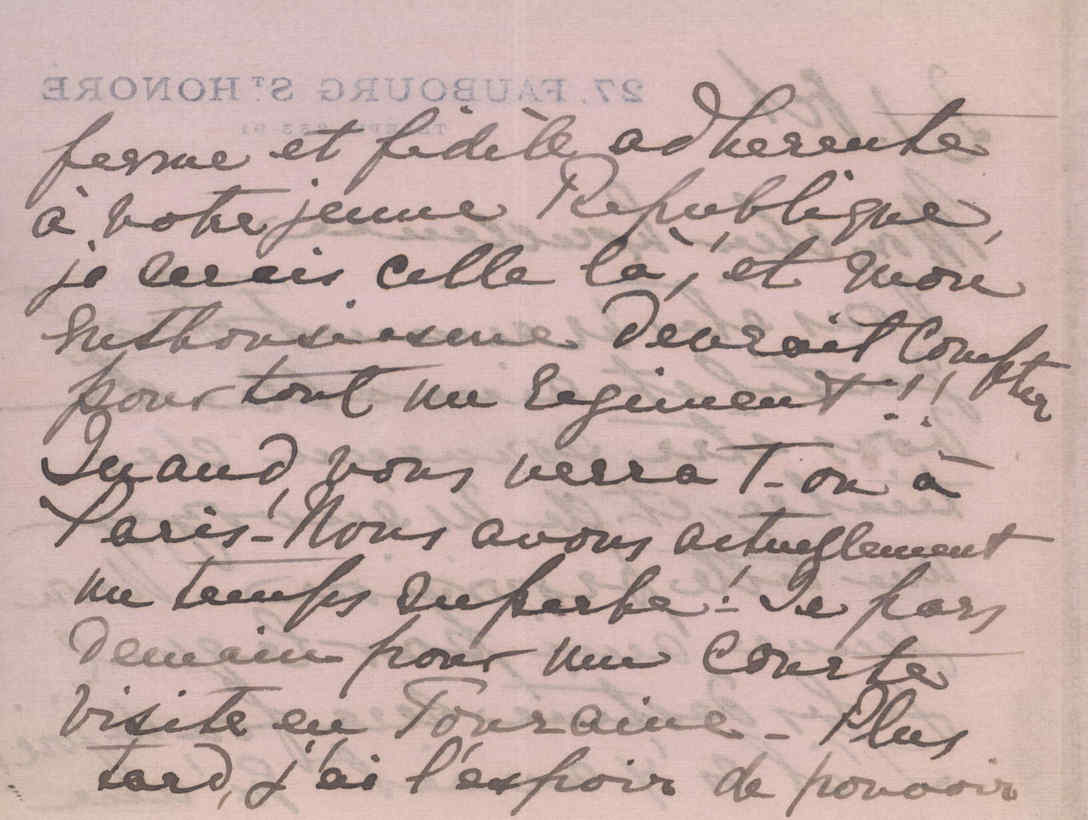 27. FAUBOURG ST HONORÉ
ferme et fidèle adherente
à votre jeune République,
je serais celle là, et mon
Enthousiasme devrait compter
pour tout un Regiment !!
Quand vous verra t-on à
Paris - Nous avons actuellement
un temps superbe ! - Je pars
demain pour une courte
visite en Touraine - Plus
tard, j'ai l'espoir de pouvoir